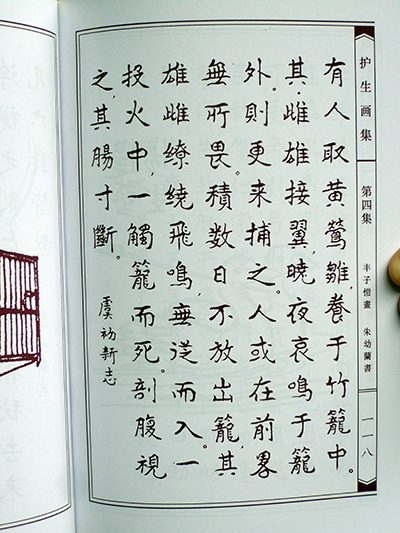 护生画集
第四集
丰子愷畫 朱幼蘭書
一一八
有人取黄鶯雛,養于竹籠中。
其雌雄接翼,曉夜哀鳴于籠
外。則更来捕之。人或在前畧
無所畏。積数日不放出籠,其
雄雌繚繞飛鳴,無從而入。一
投火中,一觸籠而死。剖腹視
之,其腸寸斷。
虞初新志